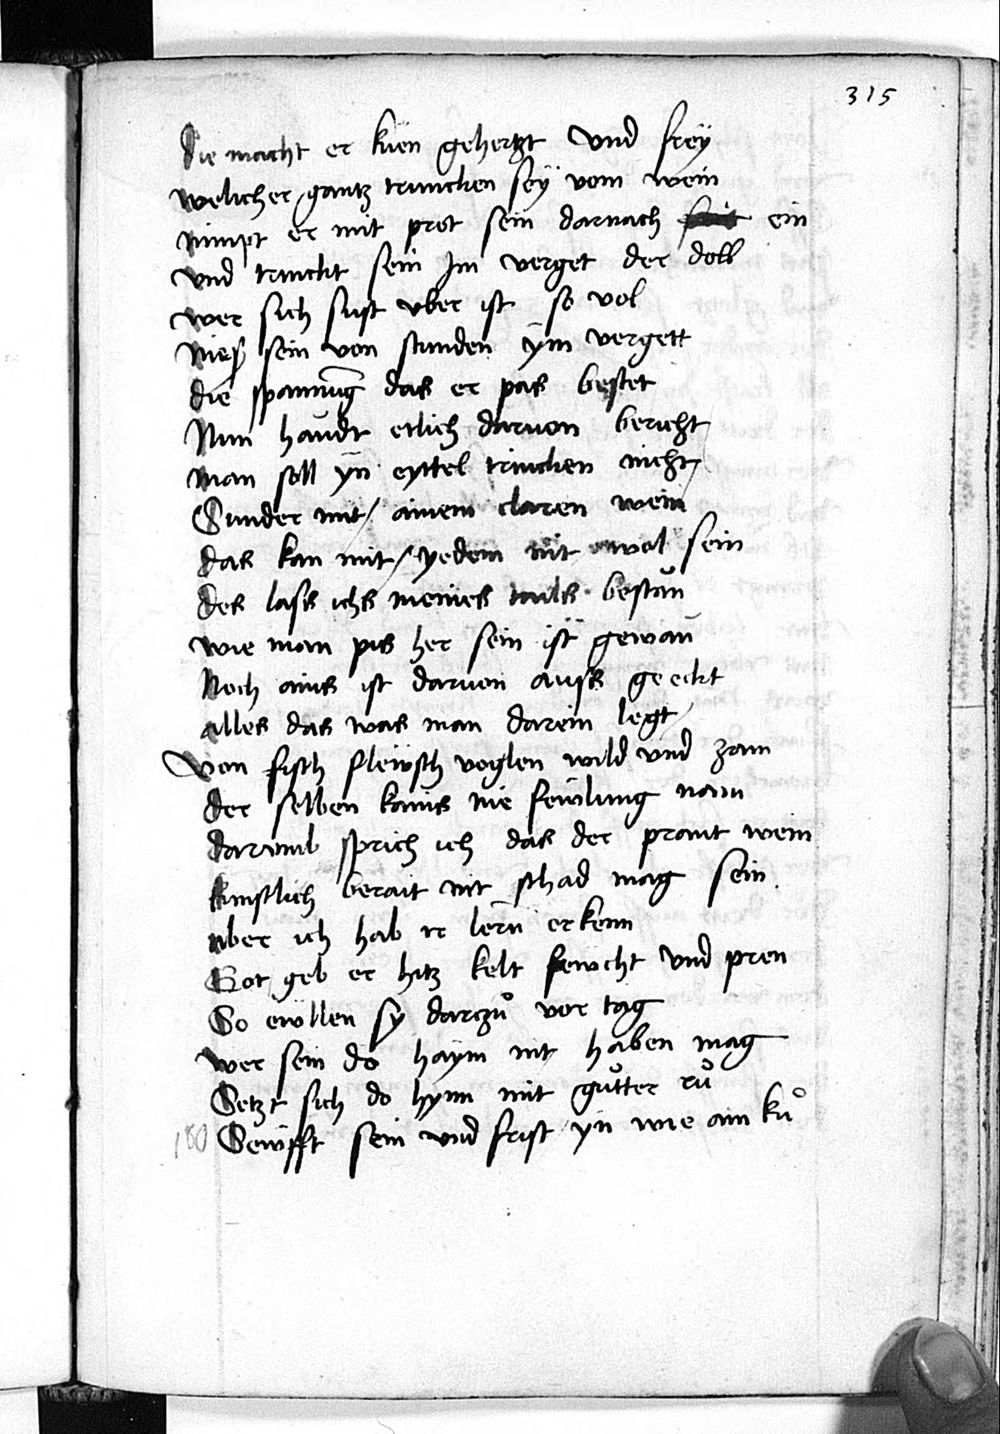 315
die macht er kuen gehertzt Vnd freÿ
welicher gantz truncken seÿ vom wein
nimpt er mit prot sein darnach ein
vnd trinckt sein Im verget der doll
wer sich sust vber ist so vol
Nieß sein von stunden ÿm vergett
die spannung das er pas bestet
Nun haudt etlich daruon bericht
man soll yn eyttel trincken nicht
Sunder mit ainem claren wein
das kan mit yedem nit wol sein
des lass ichs meines tails bestan
wie man pis her sein ist gewan
Noch ains ist daruon auss geeckt
alles das was man darein legt
Von fisch fleÿsch voglen wild vnd zam
der selben kains nie fewlung nam
darumb sprich ich das der prant wein
kunstlich berait nit schad mag sein
aber ich hab er lern erkenn
Got geb er hitz kelt fewcht Vnd pren
So ewllen sy darzů vor tag
wer sein do haÿm nit haben mag
Setzt sich do hynn mit gůtter rů
180 Sewfft sein vnd frist yn wie ain ků